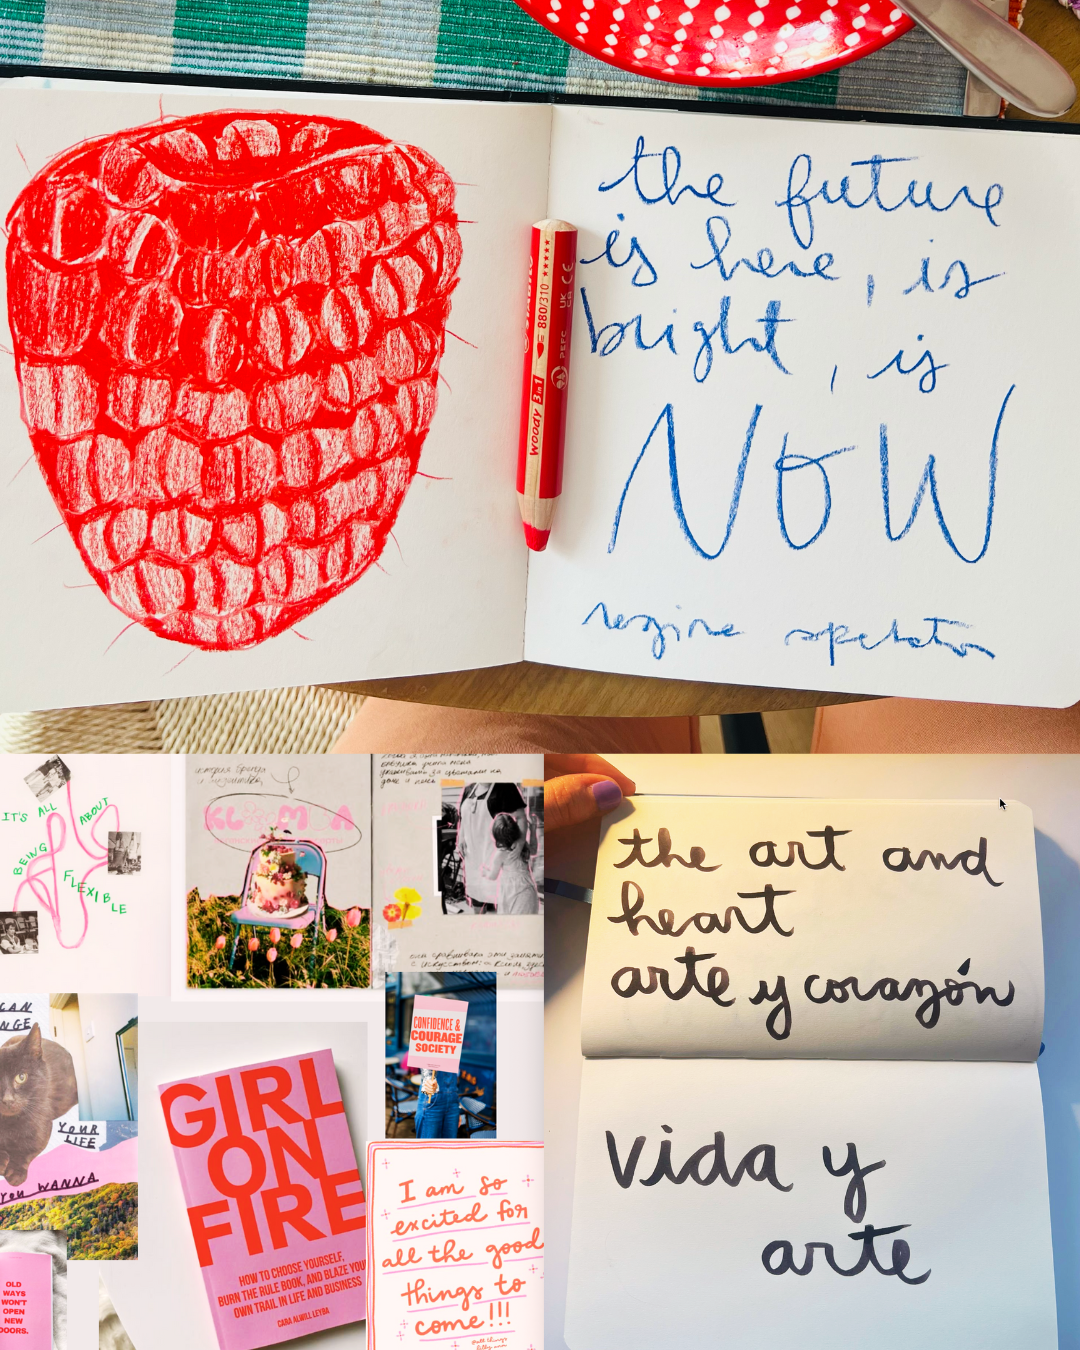 the future
is here, is
bright, is
NOW
regina spektor
woody 3 in 1
880/310 ★★★★★
PEFC
UK CA
CE
IT'S ALL ABOUT
BEING
FLEXIBLE
история бренда
KLOOMBA
CAN
NGE
YOUR
LIFE
YOU WANNA
OLD
WAYS
WON'T
OPEN
NEW
DOORS.
GIRL
ON
FIRE
HOW TO CHOOSE YOURSELF,
BURN THE RULE BOOK, AND BLAZE YOUR
OWN TRAIL IN LIFE AND BUSINESS
CARA ALWILL LEYBA
CONFIDENCE &
COURAGE
SOCIETY
I am so
excited for
all the good
things to
come!!!
the art and
heart
arte y corazón
vida y
arte